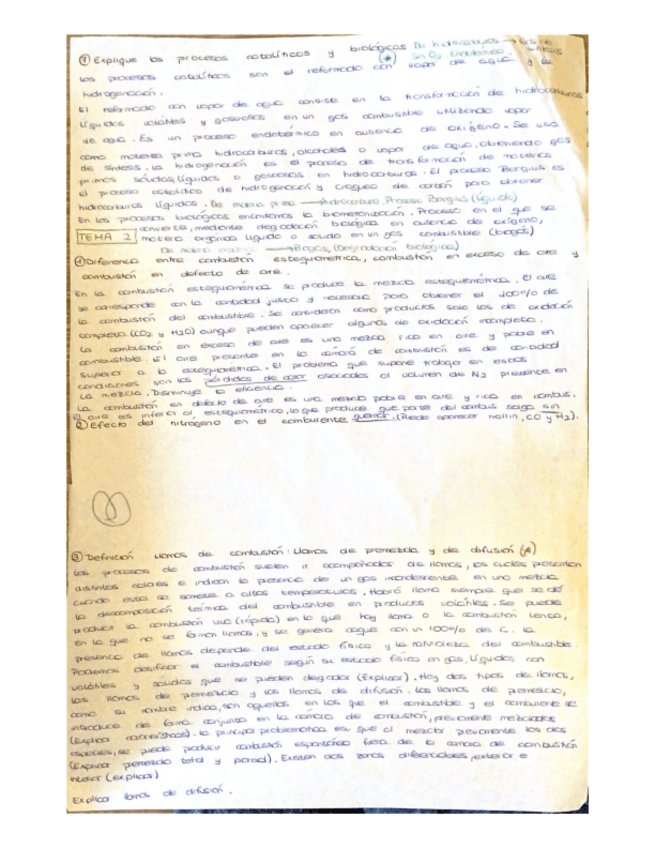 ⑦ Explique los procesos catalíticos y biológicos De hidrocarburos → Gas de síntesis
(*) Sin O2 Endotérmico.
Los procesos catalíticos son el reformado con vapor de agua y la
hidrogenación.
El reformado con vapor de agua consiste en la transformación de hidrocarburos
líquidos volátiles y gaseosos en un gas combustible utilizando vapor
de agua. Es un proceso endotérmico en ausencia de oxígeno. Se usa
como materia prima hidrocarburos, alcoholes o vapor de agua, obteniendo gas
de síntesis. La hidrogenación es el proceso de transformación de materias
primas sólidas, líquidas o gaseosas en hidrocarburos. El proceso Bergius es
el proceso catalítico de hidrogenación y craqueo de carbón para obtener
hidrocarburos líquidos. De materia prima → hidrocarburo. Proceso Bergius (líquido)
En los procesos biológicos encontramos la biometanización. Proceso en el que se
convierte, mediante degradación biológica en ausencia de oxígeno,
TEMA 2 materia orgánica líquida o sólida en un gas combustible (biogás)
De materia → Biogás, (Degradación biológica)
① Diferencia entre combustión estequiométrica, combustión en exceso de aire y
combustión en defecto de aire.
En la combustión estequiométrica se produce la mezcla estequiométrica. El aire
se corresponde con la cantidad justa y necesaria para obtener el 100% de
la combustión del combustible. Se consideran como productos solo los de oxidación
completa (CO2 y H2O) aunque pueden aparecer algunos de oxidación incompleta.
La combustión en exceso de aire es una mezcla rica en aire y pobre en
combustible. El aire presente en la cámara de combustión es de cantidad
superior a la estequiométrica. El problema que supone trabajo en estas
condiciones son las pérdidas de calor asociadas al volumen de N2 presente en
la mezcla. Disminuye la eficiencia.
La combustión en defecto de aire es una mezcla pobre en aire y rica en combus.
El aire es inferior al estequiométrico, lo que produce que parte del combus. salga sin
quemar. (Puede aparecer hollín, CO y H2).
② Efecto del nitrógeno en el comburente
③ Definición llamas de combustión: Llamas de premezcla y de difusión (*)
Los procesos de combustión suelen ir acompañados de llamas, las cuales presentan
distintos colores e indican la presencia de un gas incandescente en una mezcla
cuando esta se somete a altas temperaturas. Habrá llama siempre que se dé
la descomposición térmica del combustible en productos volátiles. Se puede
producir la combustión viva (rápida) en la que hay llama o la combustión lenta,
en la que no se forman llamas, y se genera coque con un 100% de C. La
presencia de llamas depende del estado físico y la naturaleza del combustible.
Podemos clasificar el combustible según su estado físico en gas, líquidos con
volátiles y sólidos que se pueden degradar (Explicar). Hay dos tipos de llamas,
las llamas de premezcla y las llamas de difusión. Las llamas de premezcla,
como su nombre indica, son aquellas en las que el combustible y el comburente se
introduce de forma conjunta en la cámara de combustión, previamente mezclados
(Explicar características). La principal problemática es que al mezclar previamente las dos
especies, se puede producir combustión espontánea fuera de la cámara de combustión
(Explicar premezcla total y parcial). Existen dos zonas diferenciadas, exterior e
interior (explicar)
Explicar llamas de difusión.